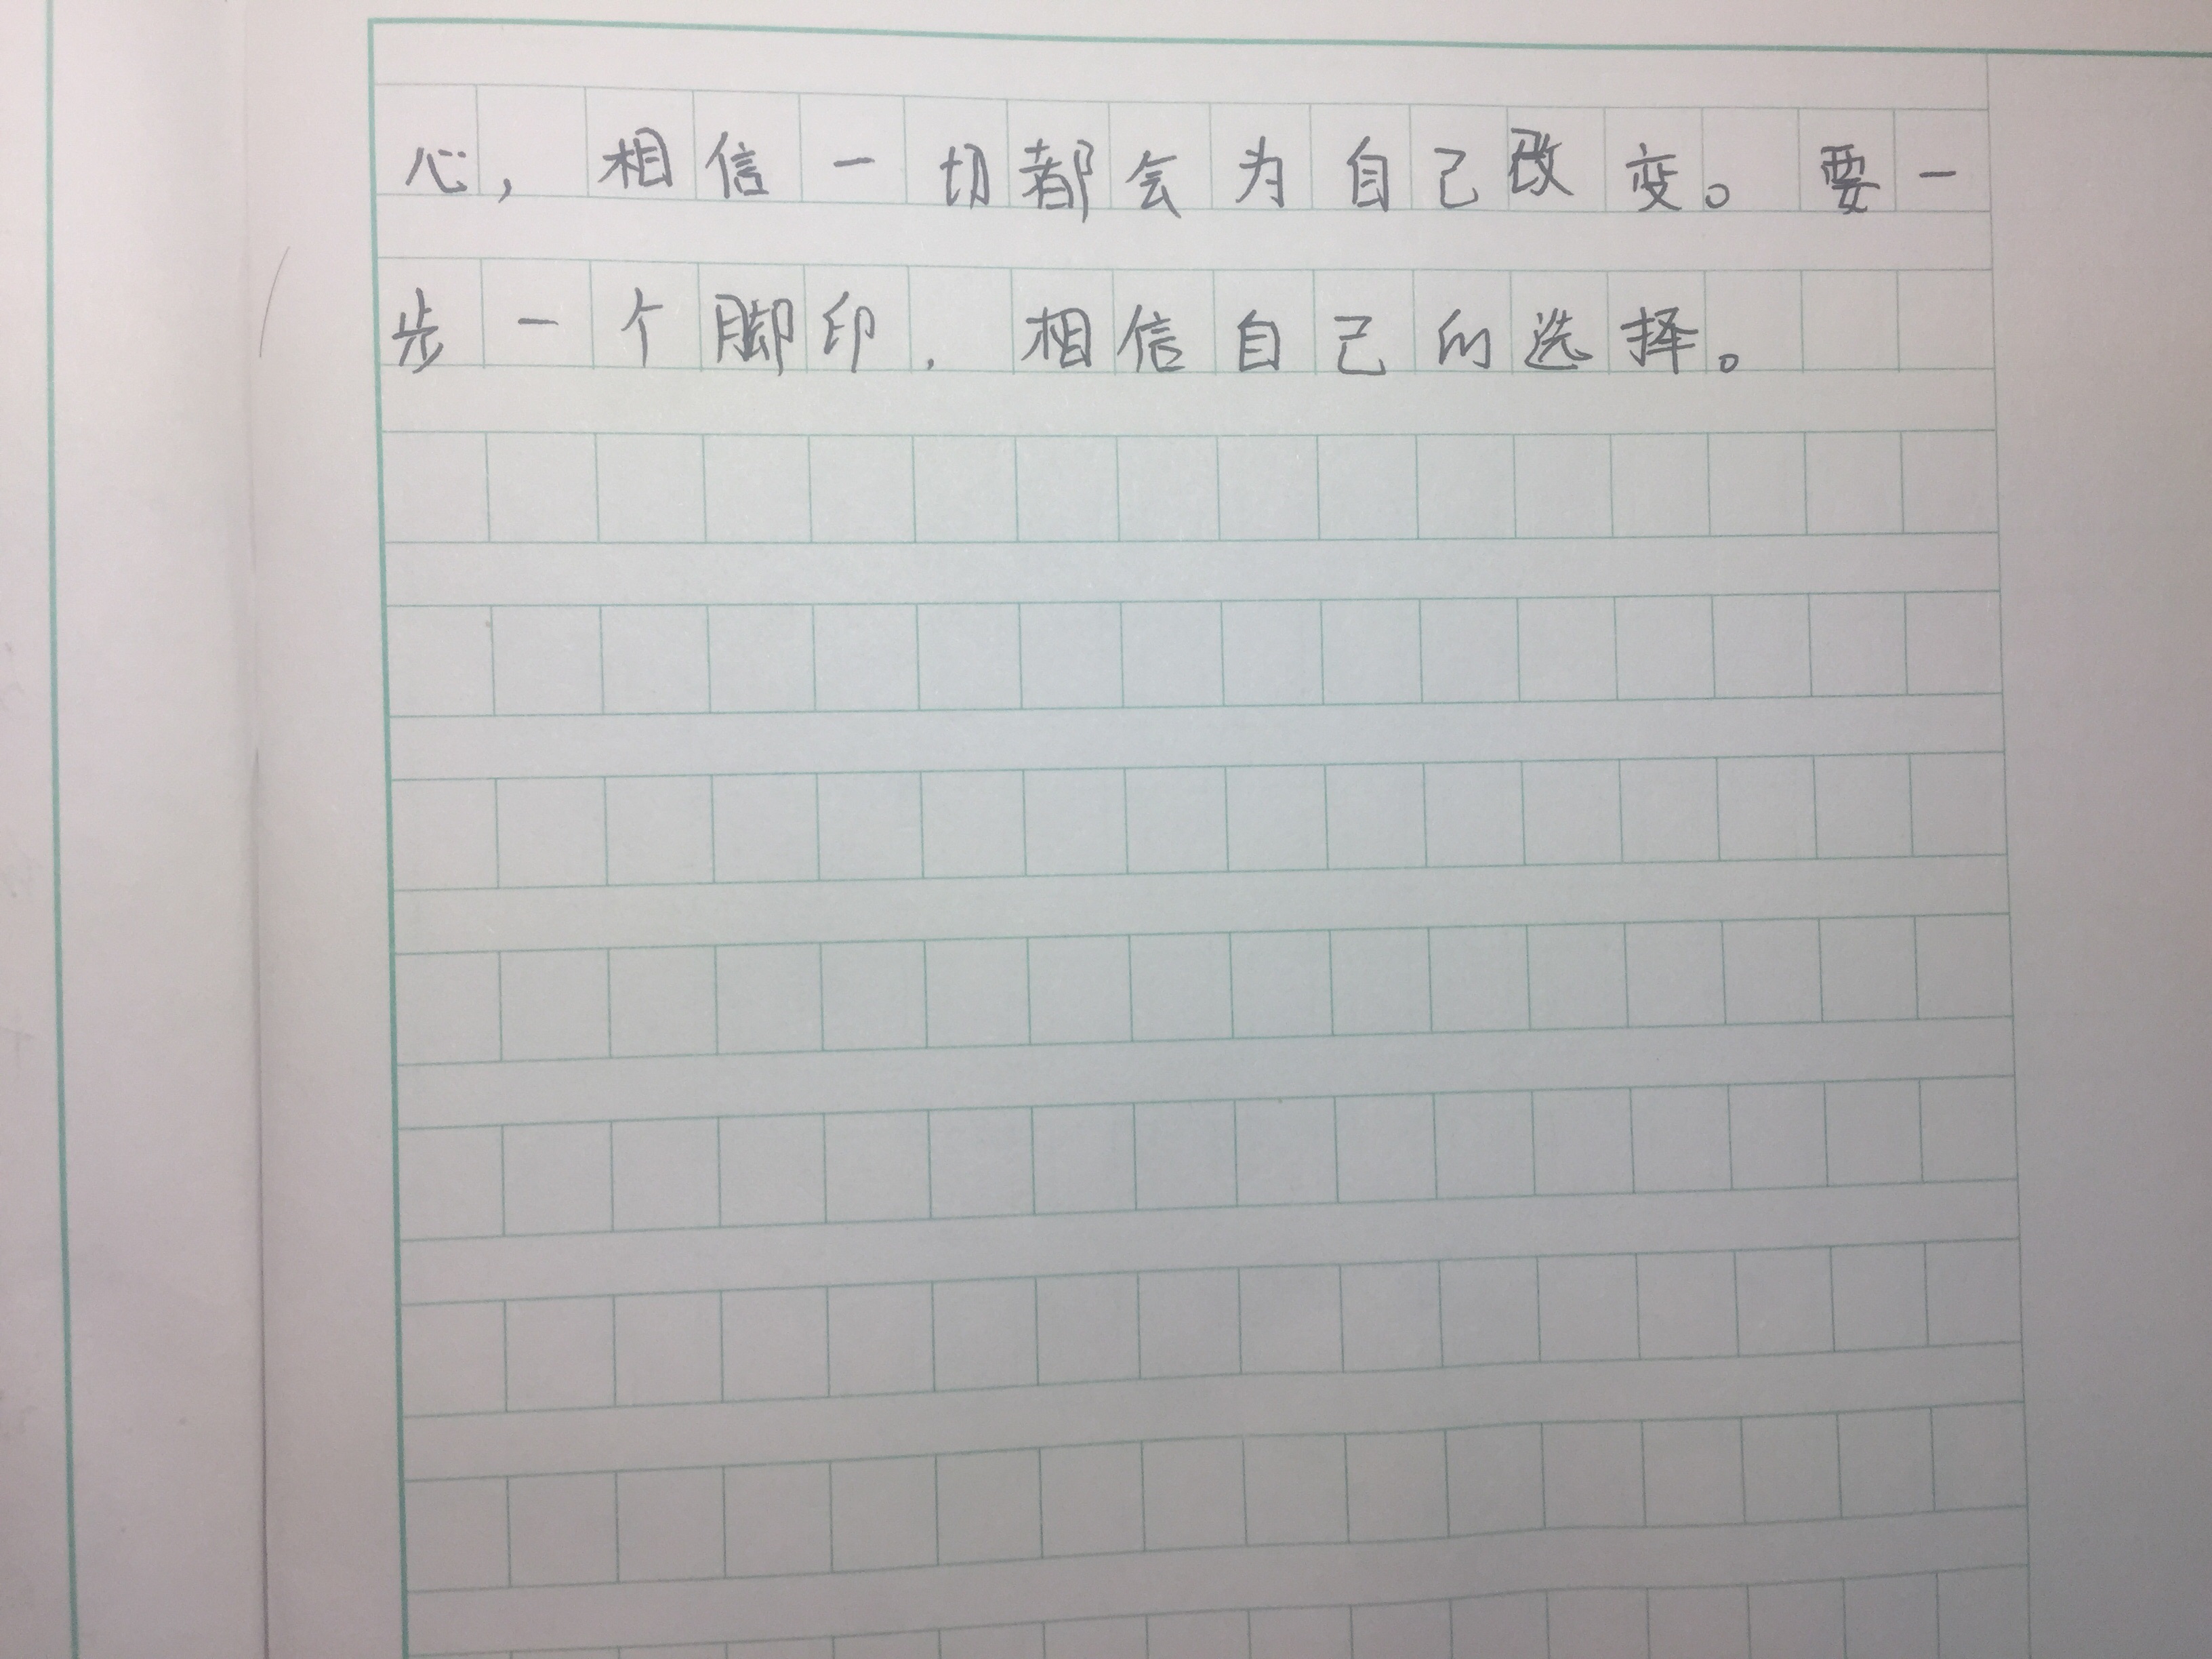 心，相信一切都会为自己改变。要一
步一个脚印，相信自己的选择。